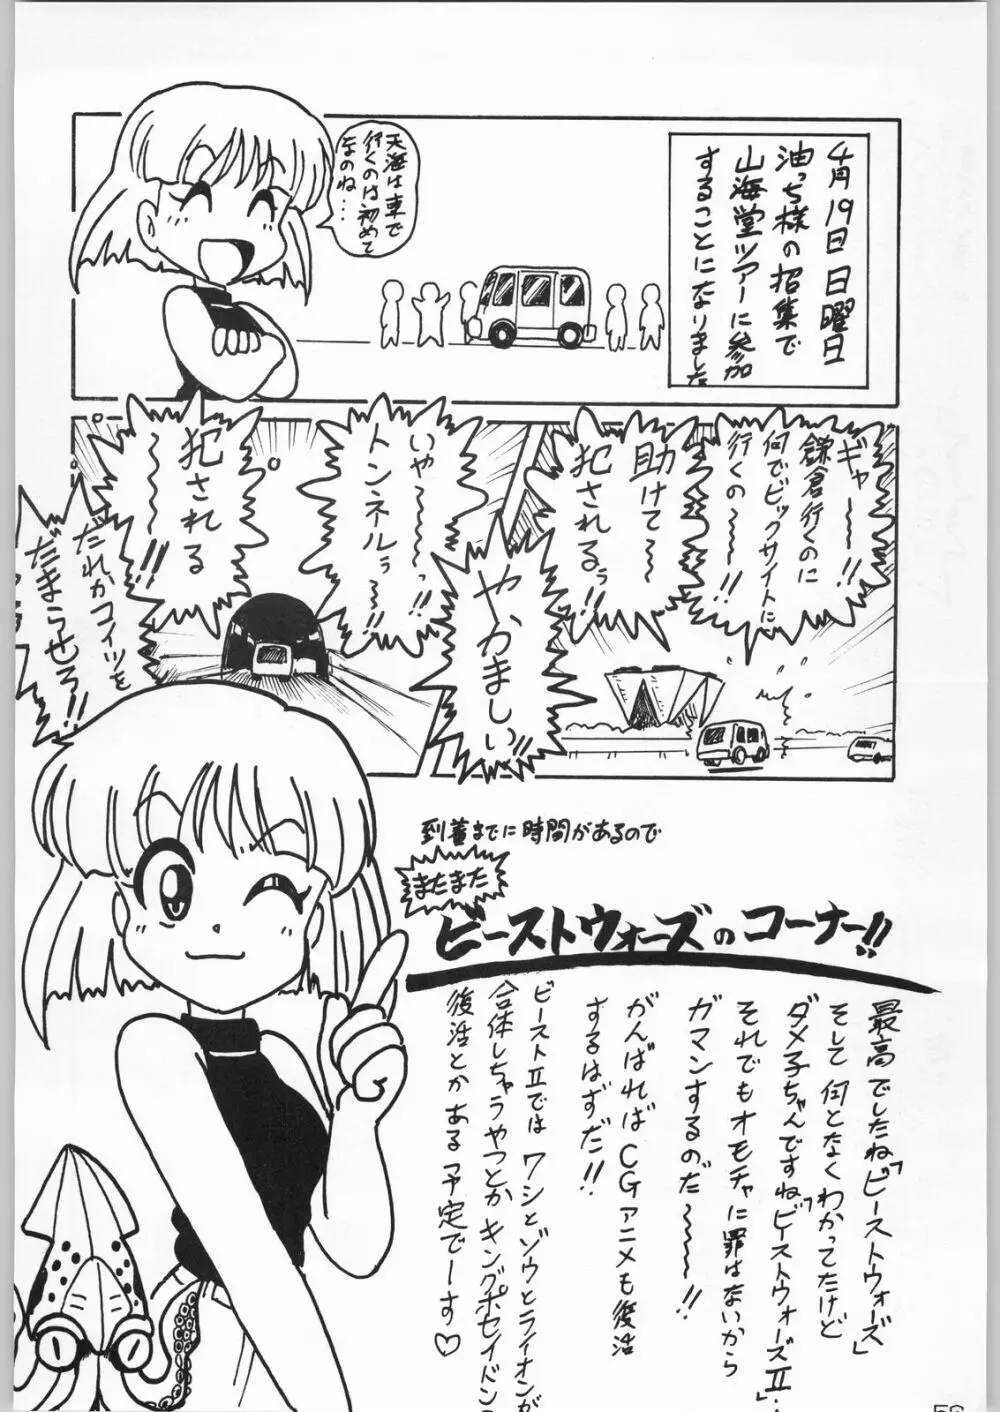 4月19日 日曜日
油っち様の招集で
山海堂ツアーに参加
することになりました
天海は車で
行くのは初めて
なのね・・・
ギャー〜〜!!
鎌倉行くのに
何でビッグサイトに
行くの〜〜〜!!
助けて〜〜
犯されるぅ〜〜!!
やかましい!!
いや〜〜〜っ!!
トンネルぅ〜〜!!
犯される
〜〜〜!!
だれかコイツを
だまらせろ!!
到着までに時間があるので
またまた
ビーストウォーズのコーナー!!
最高でしたね「ビーストウォーズ」
そして何となくわかってたけど
ダメ子ちゃんですね「ビーストウォーズⅡ」・・
それでもオモチャに罪はないから
ガマンするのだ〜〜〜!!
がんばればCGアニメも復活
するはずだ!!
ビーストⅡでは ワシとゾウとライオンが
合体しちゃうやつとか キングポセイドンの
復活とかある予定でーす♡